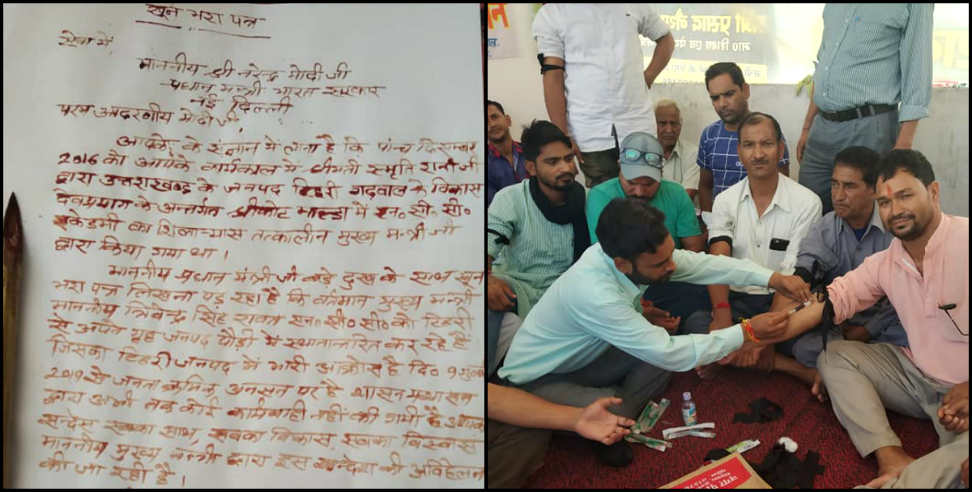 खून भरा पत्र
सेवा में
माननीय श्री नरेन्द्र मोदी जी
प्रधान मन्त्री भारत सरकार
नई दिल्ली
परम आदरणीय मोदी जी
आपके के संज्ञान में लाना है कि पाँच दिसम्बर
2016 को आपके कार्यकाल में श्रीमती स्मृति रानी जी
द्वारा उत्तराखण्ड के जनपद टिहरी गढवाल के विकास
देवप्रयाग के अन्तर्गत श्रीकोट माल्डा में एन० सी० सी०
एकेडमी का शिलान्यास तत्कालीन मुख्य मन्त्री जी
द्वारा किया गया था।
माननीय प्रधान मंत्री जी बडे दुख के साथ खून
भरा पत्र लिखना पड़ रहा है कि वर्तमान मुख्य मन्त्री
माननीय त्रिवेन्द्र सिंह रावत एन० सी० सी० को टिहरी
से अपने गृह जनपद पौड़ी में स्थानान्तरित कर रहे हैं
जिसका टिहरी जनपद में भारी आक्रोस है दि० 9
2019 से जनता क्रमिक अनसन पर है शासन प्रशासन
द्वारा अभी तक कोई कार्यवाही नहीं की गयी है आपका
सन्देश सबका साथ, सबका विकास सबका विस्वास
माननीय मुख्य मन्त्री द्वारा इस सन्देश की अवहेलना
की जा रही है।